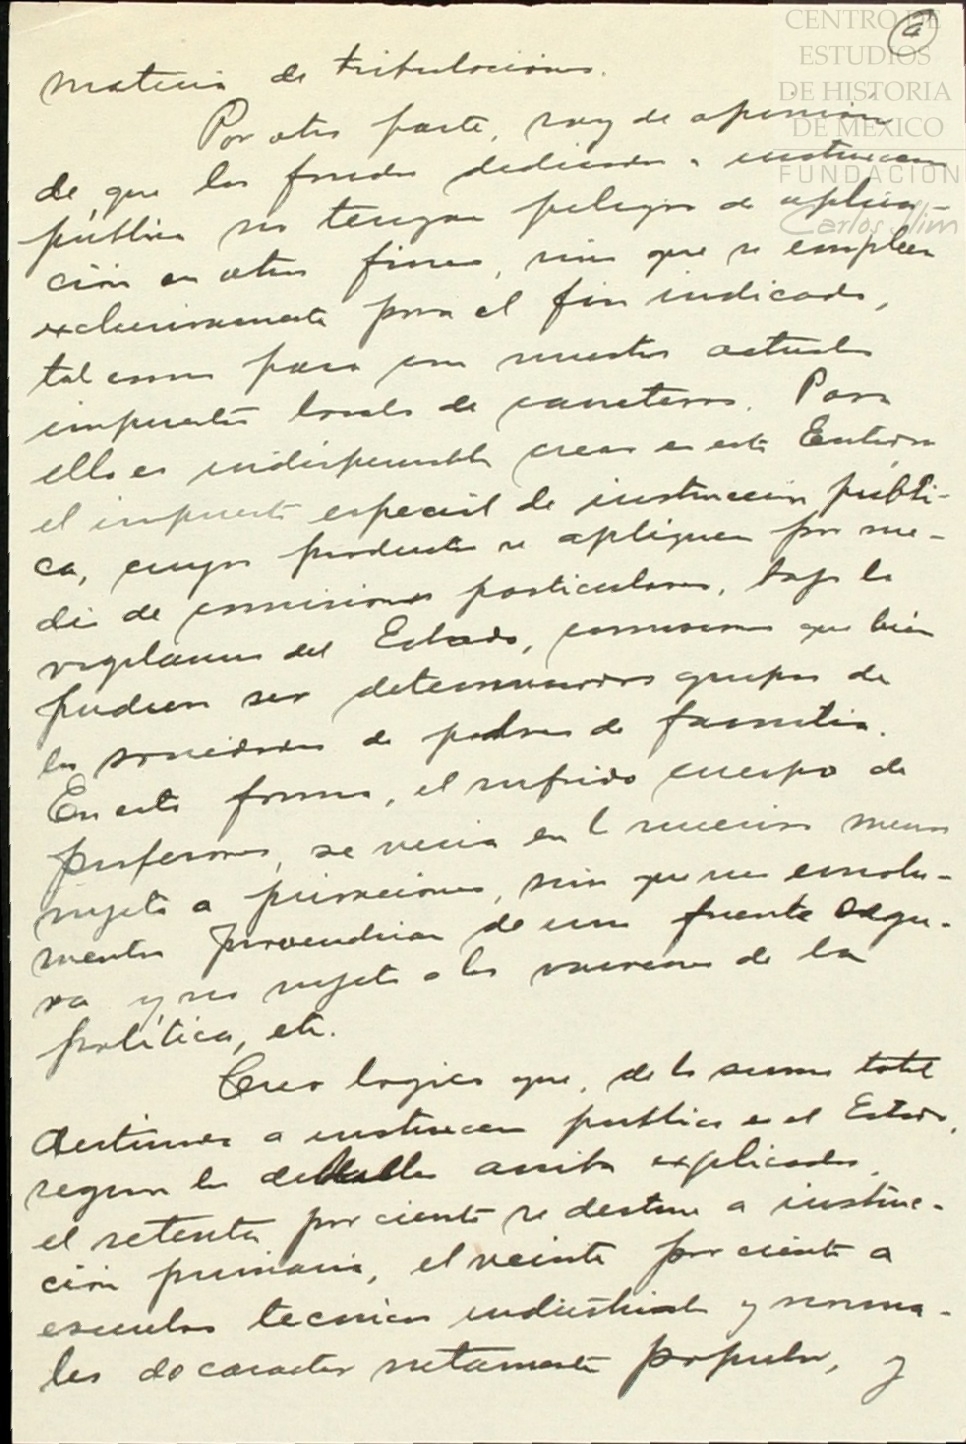 CENTRO DE
ESTUDIOS
DE HISTORIA
DE MÉXICO
FUNDACIÓN
Carlos Slim
4
materia de tribulaciones.
Por otra parte, soy de opinión
de que los fondos dedicados a instruccion
pública no tengan peligro de aplica-
ción en otros fines, sino que se empleen
exclusivamente para el fin indicado,
tal como pasa con nuestros actuales
impuestos locales de carreteras. Para
ello es indispensable crear en esta Entidad
el impuesto especial de instrucción públi-
ca, cuyos productos se apliquen por me-
dio de comisiones particulares, bajo la
vigilancia del Estado, comisiones que bien
pudieran ser determinados grupos de
las sociedades de padres de familia.
En esta forma, el sufrido cuerpo de
profesores, se veria en lo sucesivo menos
sujeto a privaciones, sino que sus emolu-
mentos provendrian de una fuente segu-
ra y no sujeta a los vaivenes de la
política, etc.
Creo logico que, de la suma total
destinada a instruccion publica en el Estado,
segun los detalles arriba explicados,
el setenta por ciento se destine a instruc-
ción primaria, el veinte por ciento a
escuelas tecnicas industriales y norma-
les de caracter netamente popular, y